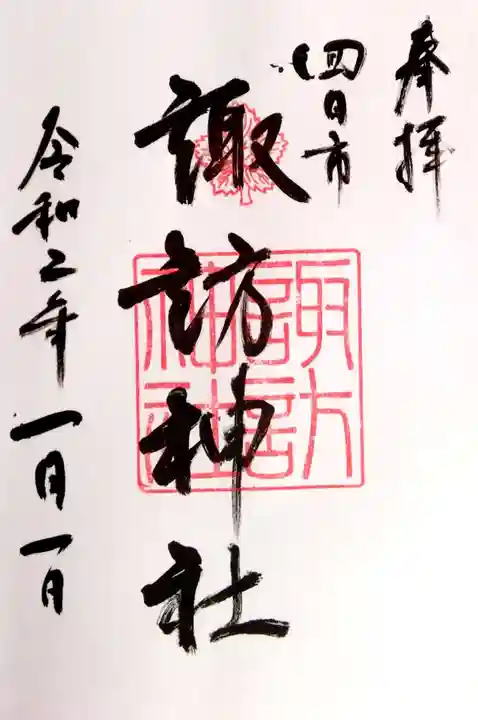 奉拝
四日市
諏訪神社
諏訪
神社
令和二年一月一日